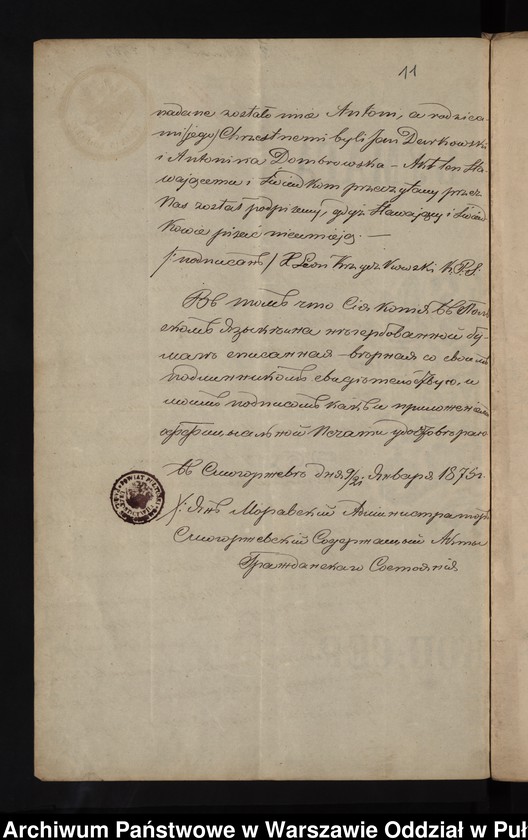 11
nadane zostało imie Antoni, a rodzica-
mi /jego/ Chrzestnemi byli Jan Durkowski
i Antonina Dombrowska – Akt ten Sta-
wającemu i Świadkom przeczytany przez
Nas został podpisany, gdyż Stawający i Świad-
kowie pisać nieumieją. —
/:podpisano:/ X Leon K.P.S.
Въ томъ что Сія копія въ Поль-
скомъ языкѣ на негербованной бу-
магѣ списанная – вѣрная со своимъ
подлинникомъ свидѣтельствую, и
моимъ подписомъ какъ и приложеніемъ
оффиціальной Печати удостовѣряю
въ Смогоржевѣ дня 9/21 Января 1875 г.
/: Янъ Моравскій Администраторъ
Смогоржевскій Содержащый Акты
Гражданскаго Состоянія
Archiwum Państwowe w Warszawie Oddział w Puł